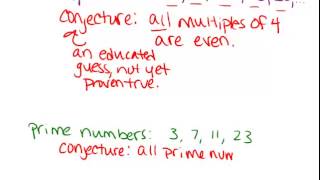 conjecture: all multiples of 4
are even.
an educated
guess, not yet
proven true.
prime numbers: 3, 7, 11, 23
conjecture: all prime num